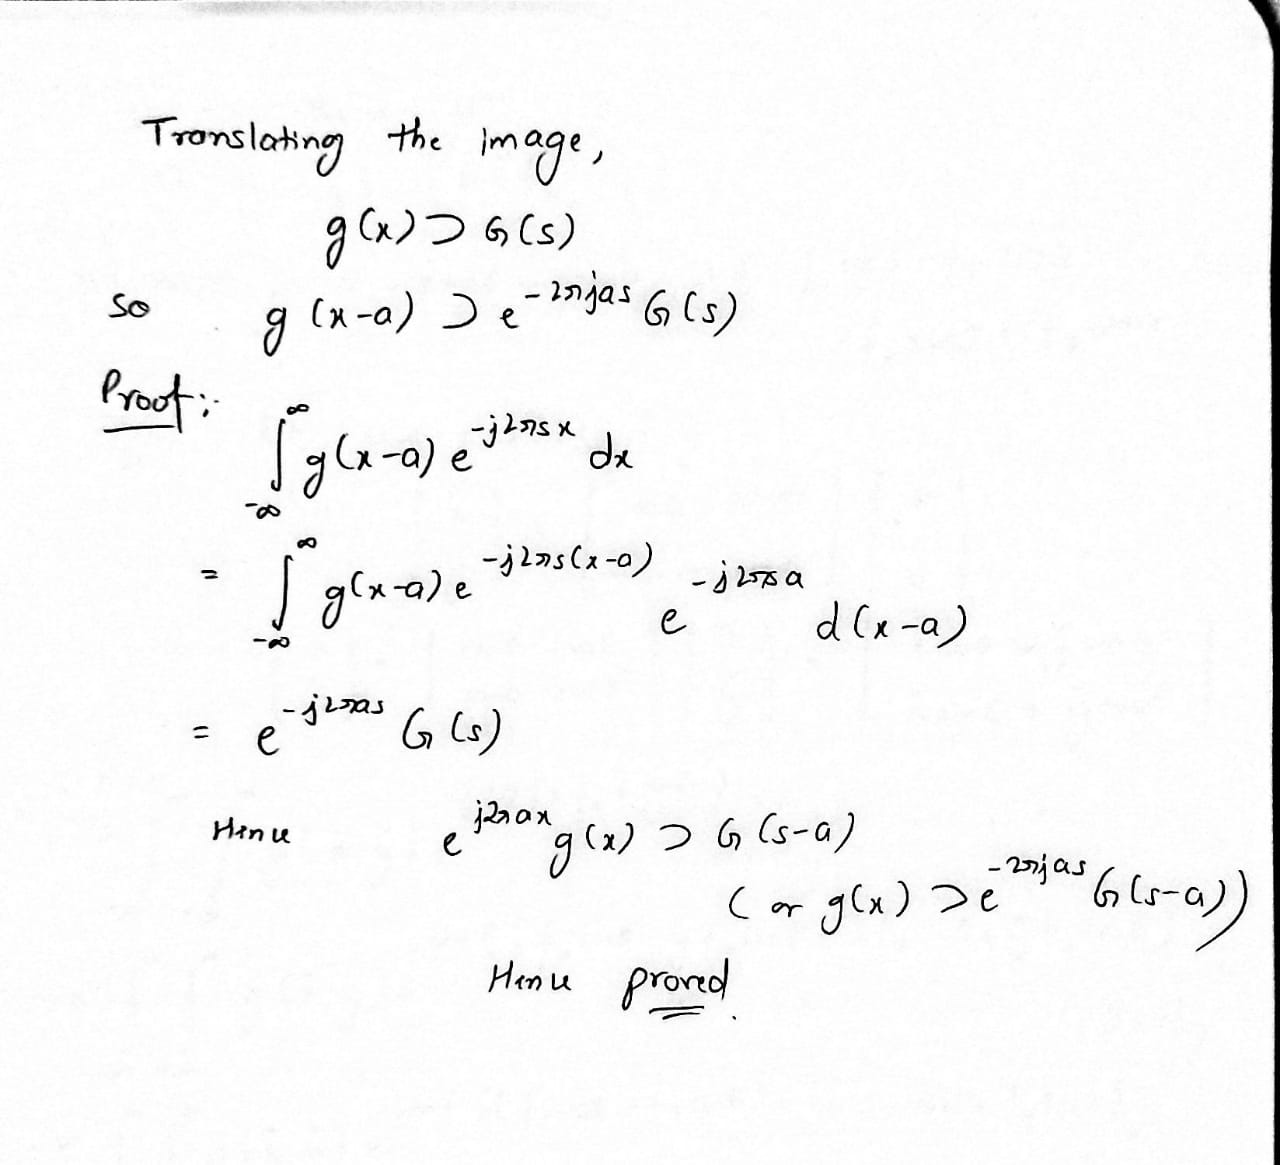 Translating the image,
g(x) ⊃ G(s)
so g(x-a) ⊃ e^{-2πjas} G(s)
Proof:-
∫_{-∞}^{∞} g(x-a) e^{-j2πsx} dx
= ∫_{-∞}^{∞} g(x-a) e^{-j2πs(x-a)} e^{-j2πsa} d(x-a)
= e^{-j2πas} G(s)
Hence e^{j2πax} g(x) ⊃ G(s-a)
(or g(x) ⊃ e^{-2πjas} G(s-a))
Hence proved.